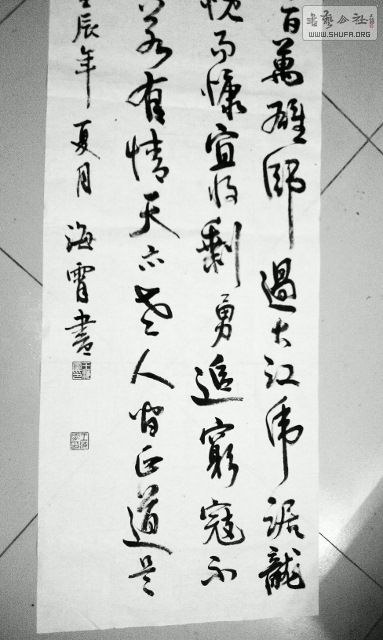 百萬雄師過大江虎踞龍
慨而慷宜将剩勇追窮寇不
若有情天亦老人间正道是
壬辰年夏月海霄書
書藝公社
WWW.SHUFA.ORG